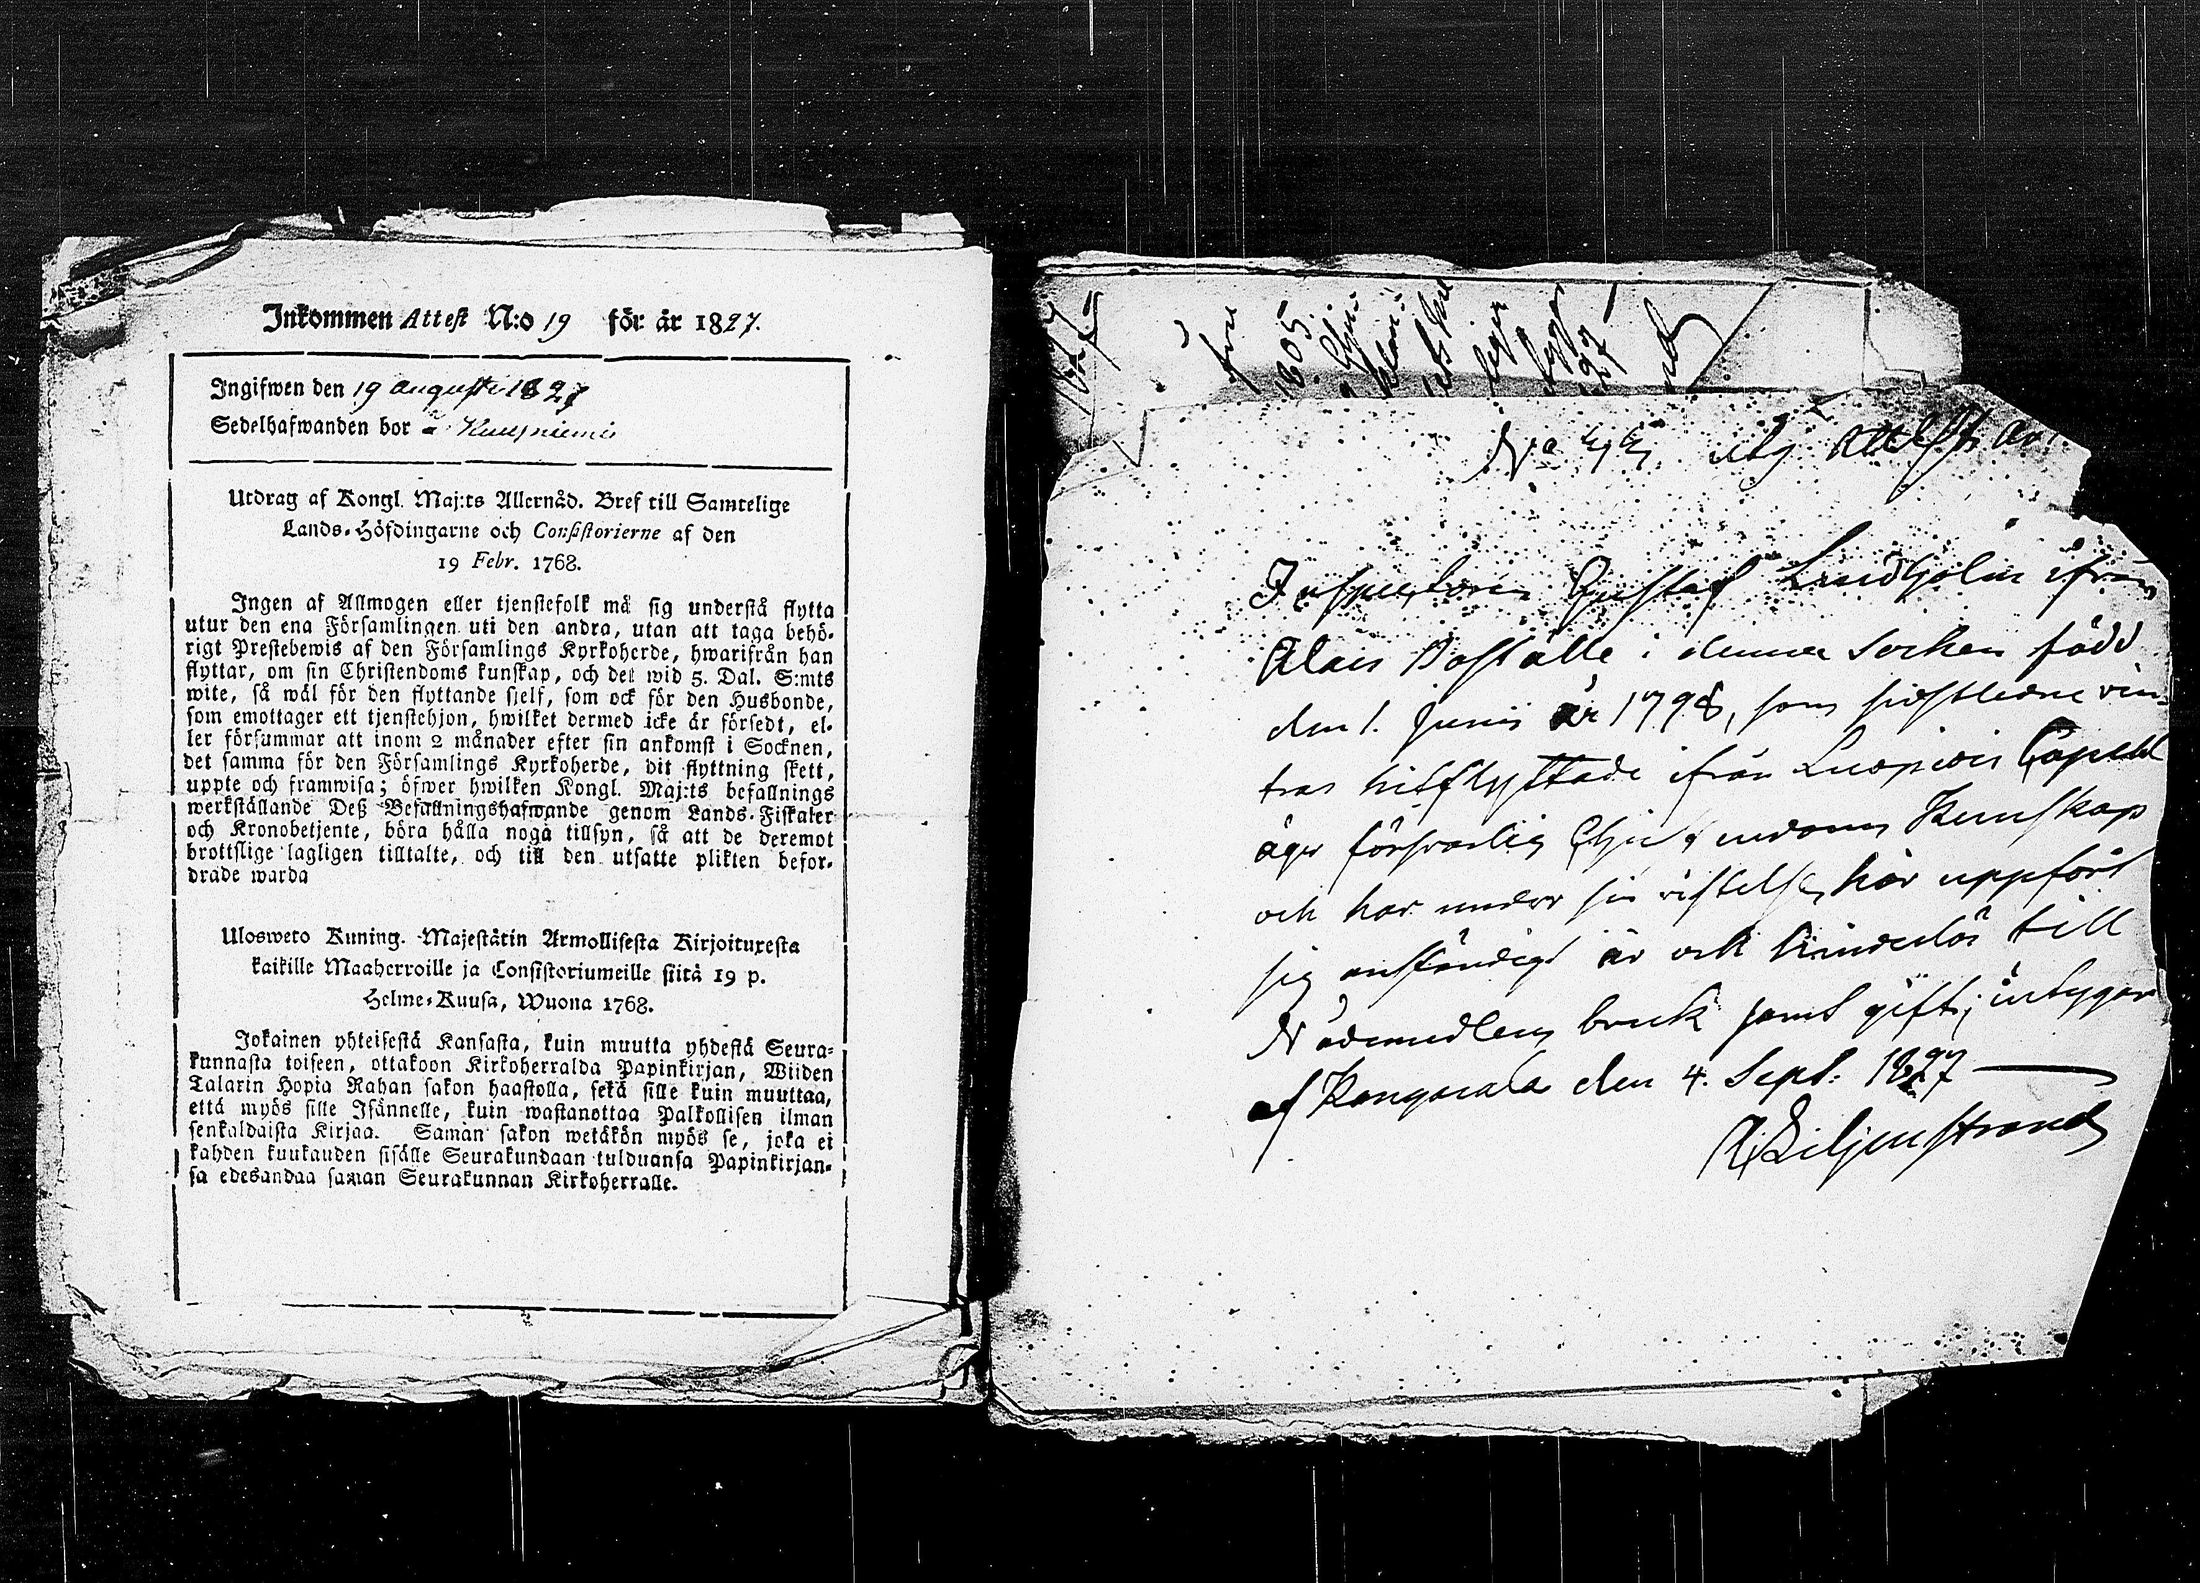 Inkommen Attest N:o 19 för år 1827.
Ingifwen den 19 augusti 1827
Sedelhafwanden bor å
Utdrag af Kongl. Maj:ts Allernåd. Bref till Samtelige
Lands-Höfdingarne och Consistorierne af den
19 Febr. 1768.
Ingen af Allmogen eller tjenstefolk må sig understå flytta
utur den ena Församlingen uti den andra, utan att taga behö-
rigt Prestebewis af den Församlings Kyrkoherde, hwarifrån han
flyttar, om sin Christendoms kunskap, och det wid 5. Dal. S:mts
wite, så wäl för den flyttande sjelf, som ock för den Husbonde,
som emottager ett tjenstehjon, hwilket dermed icke är försedt, el-
ler försummar att inom 2 månader efter sin ankomst i Socknen,
det samma för den Församlings Kyrkoherde, dit flyttning skett,
uppte och framwisa; öfwer hwilken Kongl. Maj:ts befallnings
werkställande Deß Befallningshafwande genom Lands-Fiskaler
och Kronobetjente, böra hålla noga tillsyn, så att de deremot
brottslige lagligen tilltalte, och till den utsatte plikten befor-
drade warda
Ulosweto Kuning. Majestätin Armollisesta Kirjoituxesta
kaikille Maaherroille ja Consistoriumeille siitä 19 p.
Helme-Kuusa, Wuona 1768.
Jokainen yhteisestä Kansasta, kuin muutta yhdestä Seura-
kunnasta toiseen, ottakoon Kirkoherralda Papinkirjan, Wiiden
Talarin Hopia Rahan sakon haastolla, sekä sille kuin muuttaa,
että myös sille Isännelle, kuin wastanottaa Palkollisen ilman
senkaldaista Kirjaa. Saman sakon wetäkön myös se, joka ei
kahden kuukauden sisälle Seurakundaan tulduansa Papinkirjan-
sa edesandaa saman Seurakunnan Kirkoherralle.
No utg Attest
Inspectoren Gustaf Lindholm ifrån
Boställe i denna Socken född
den 1. Junii år 1798, som sidstledne vin-
ter hitflyttade ifrån Luopiois Capell
äger försvarlig Christendoms Kunskap
och har under sin vistelse här uppfört
sig anständigt är och hinderlös till
Nådemedlens bruk samt gift; intygar
af Kangasala den 4. Sept: 1827
Liljenstrand